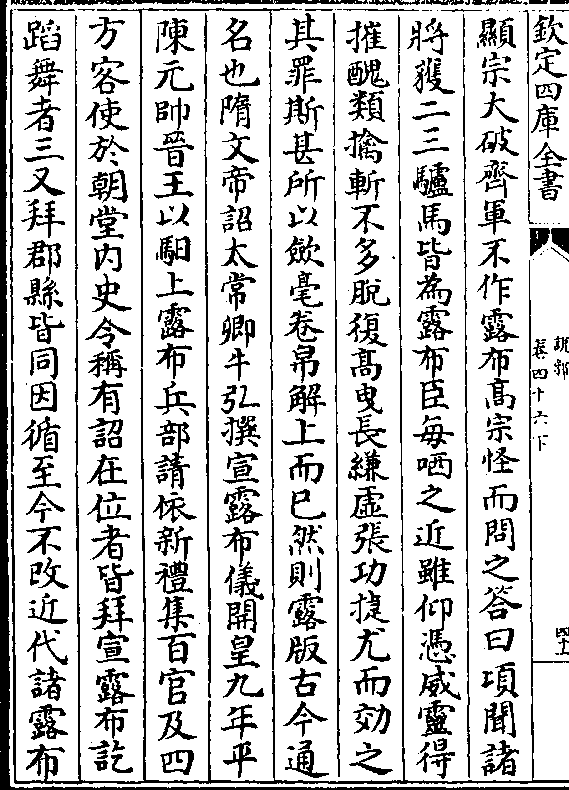 欽定四庫全書
說郛
卷四十六下
顯宗大破齊軍不作露布髙宗怪而問之答曰項聞諸
將獲二三驢馬皆為露布臣每哂之近雖仰憑威靈得
摧醜類擒斬不多脫復髙曵長縑虛張功捷尤而効之
其罪斯甚所以斂毫卷帛解上而已然則露版古今通
名也隋文帝詔太常卿牛弘撰宣露布儀開皇九年平
陳元帥晉王以馹上露布兵部請依新禮集百官及四
方客使於朝堂内史令稱有詔在位者皆拜宣露布訖
蹈舞者三又拜郡縣皆同因循至今不改近代諸露布